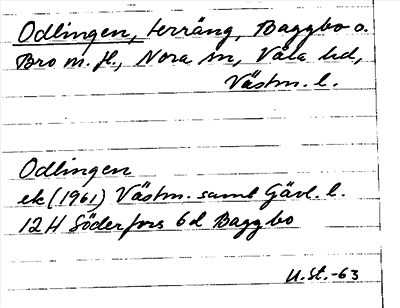 Odlingen, terräng, Baggbo o.
Bro m. fl., Nora sn, Våla hd,
Västm. l.
Odlingen
ek (1961) Västm. samt Gävl. l.
12 H Söderfors 6d Baggbo
U.St.-63